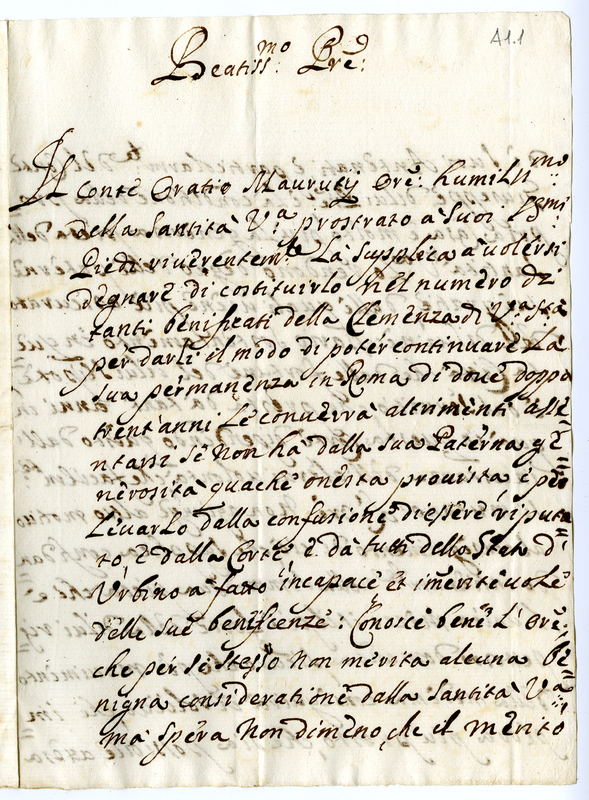 A1.1
Beatiss:mo Prē:
Il Conte Oratio Maurutij Orē: humiliss:mo
della Santità V.a prostrato a suoi SSmi
Piedi riverentem:te La supplica a volersi
degnare di costituirlo nel numero di
tanti benificati della Clemenza di V.a Stà
per darli il modo di poter continuare La
sua permanenza in Roma di dove doppo
trent'anni Le converrà altrimenti asse=
ntarsi se non hà dalla sua Paterna ge=
nerosità qualche onesta provista e per
Levarlo dalla confusione di essere riputa
to, e dalla Corte e dà tutti dello Stato d'
Urbino a fatto incapace et imeritevole
delle sue benificenze: Conosce bene L'Orē:
che per se stesso non merita alcuna be=
nigna consideratione dalla Santità V.a
mà spera non dimeno che il merito